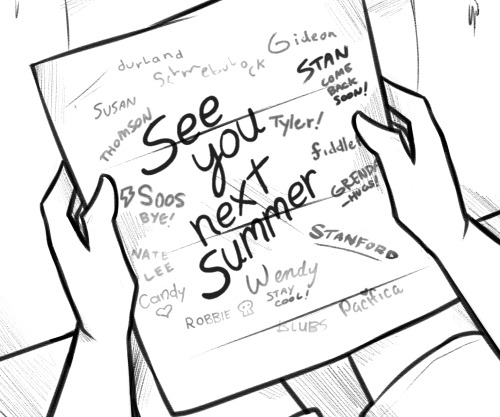 durland
Gideon
Schmebulock
STAN
COME
BACK
SOON!
SUSAN
THOMSON
See
you
next
summer
Tyler!
fiddle
SOOS
BYE!
GRENDA
HUGS!
STANFORD
NATE
LEE
Candy
Wendy
STAY
COOL!
ROBBIE
BLUBS
Pacifica